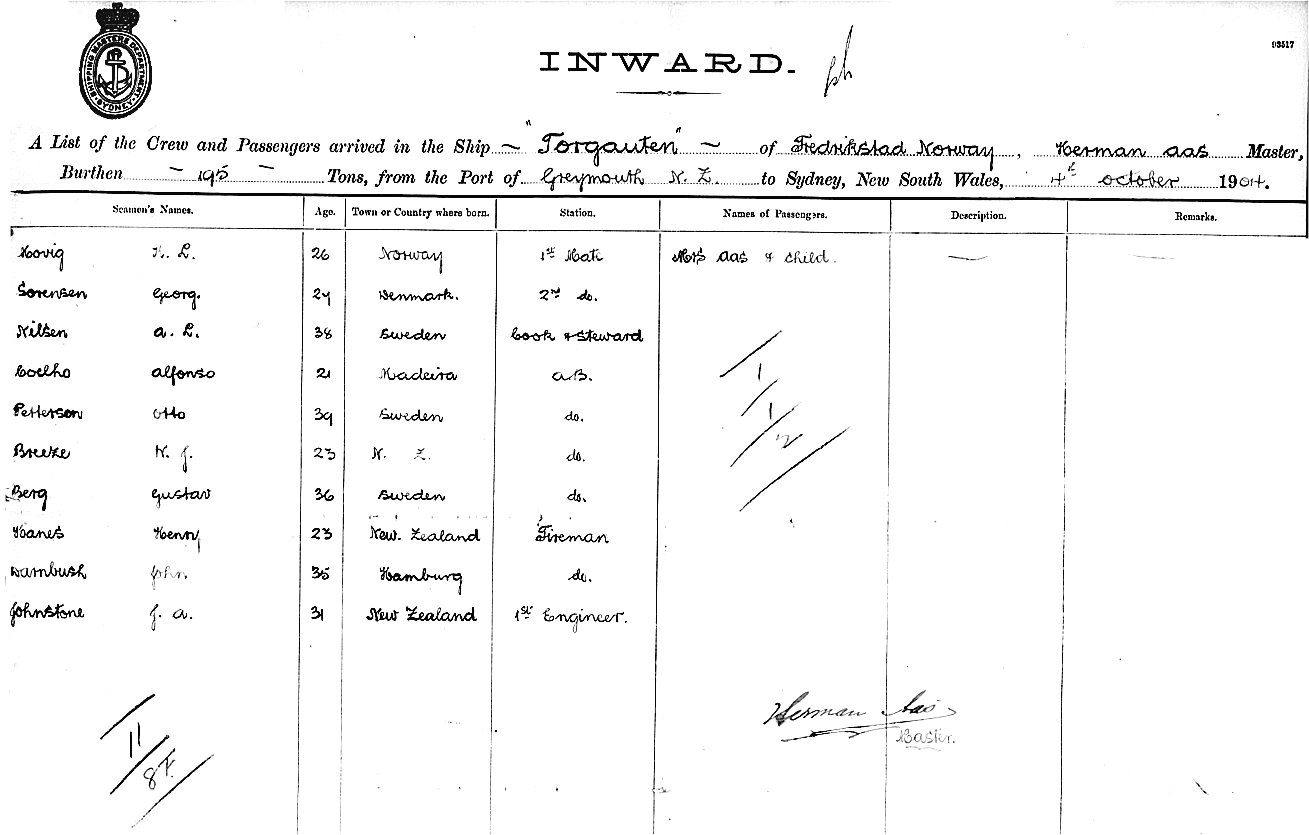 SHIPPING MASTERS DEPARTMENT
SYDNEY
93517
INWARD.
A List of the Crew and Passengers arrived in the Ship ~ "Torgauten" ~ of Fredrikstad Norway, Herman Aas Master,
Burthen - 195 - Tons, from the Port of Greymouth N. Z. to Sydney, New South Wales, 4th October 1904.
Seamen's Names. Age. Town or Country where born. Station. Names of Passengers. Description. Remarks.
Hovig H. L. 26 Norway 1st Mate Mrs Aas & child. — —
Sorensen Georg. 27 Denmark. 2nd do.
Nilsen A. L. 38 Sweden Cook & Steward
Coelho Alfonso 21 Madeira A.B.
Petterson Otto 39 Sweden do.
Breeze 23 N. Z. do.
Berg Gustav 36 Sweden do.
Hanes Henry 23 New. Zealand Fireman
Darnbush John 35 Hamburg do.
Johnstone J. A. 31 New Zealand 1st Engineer.
1
1
2
11
8 F.
Herman Aas
Master.